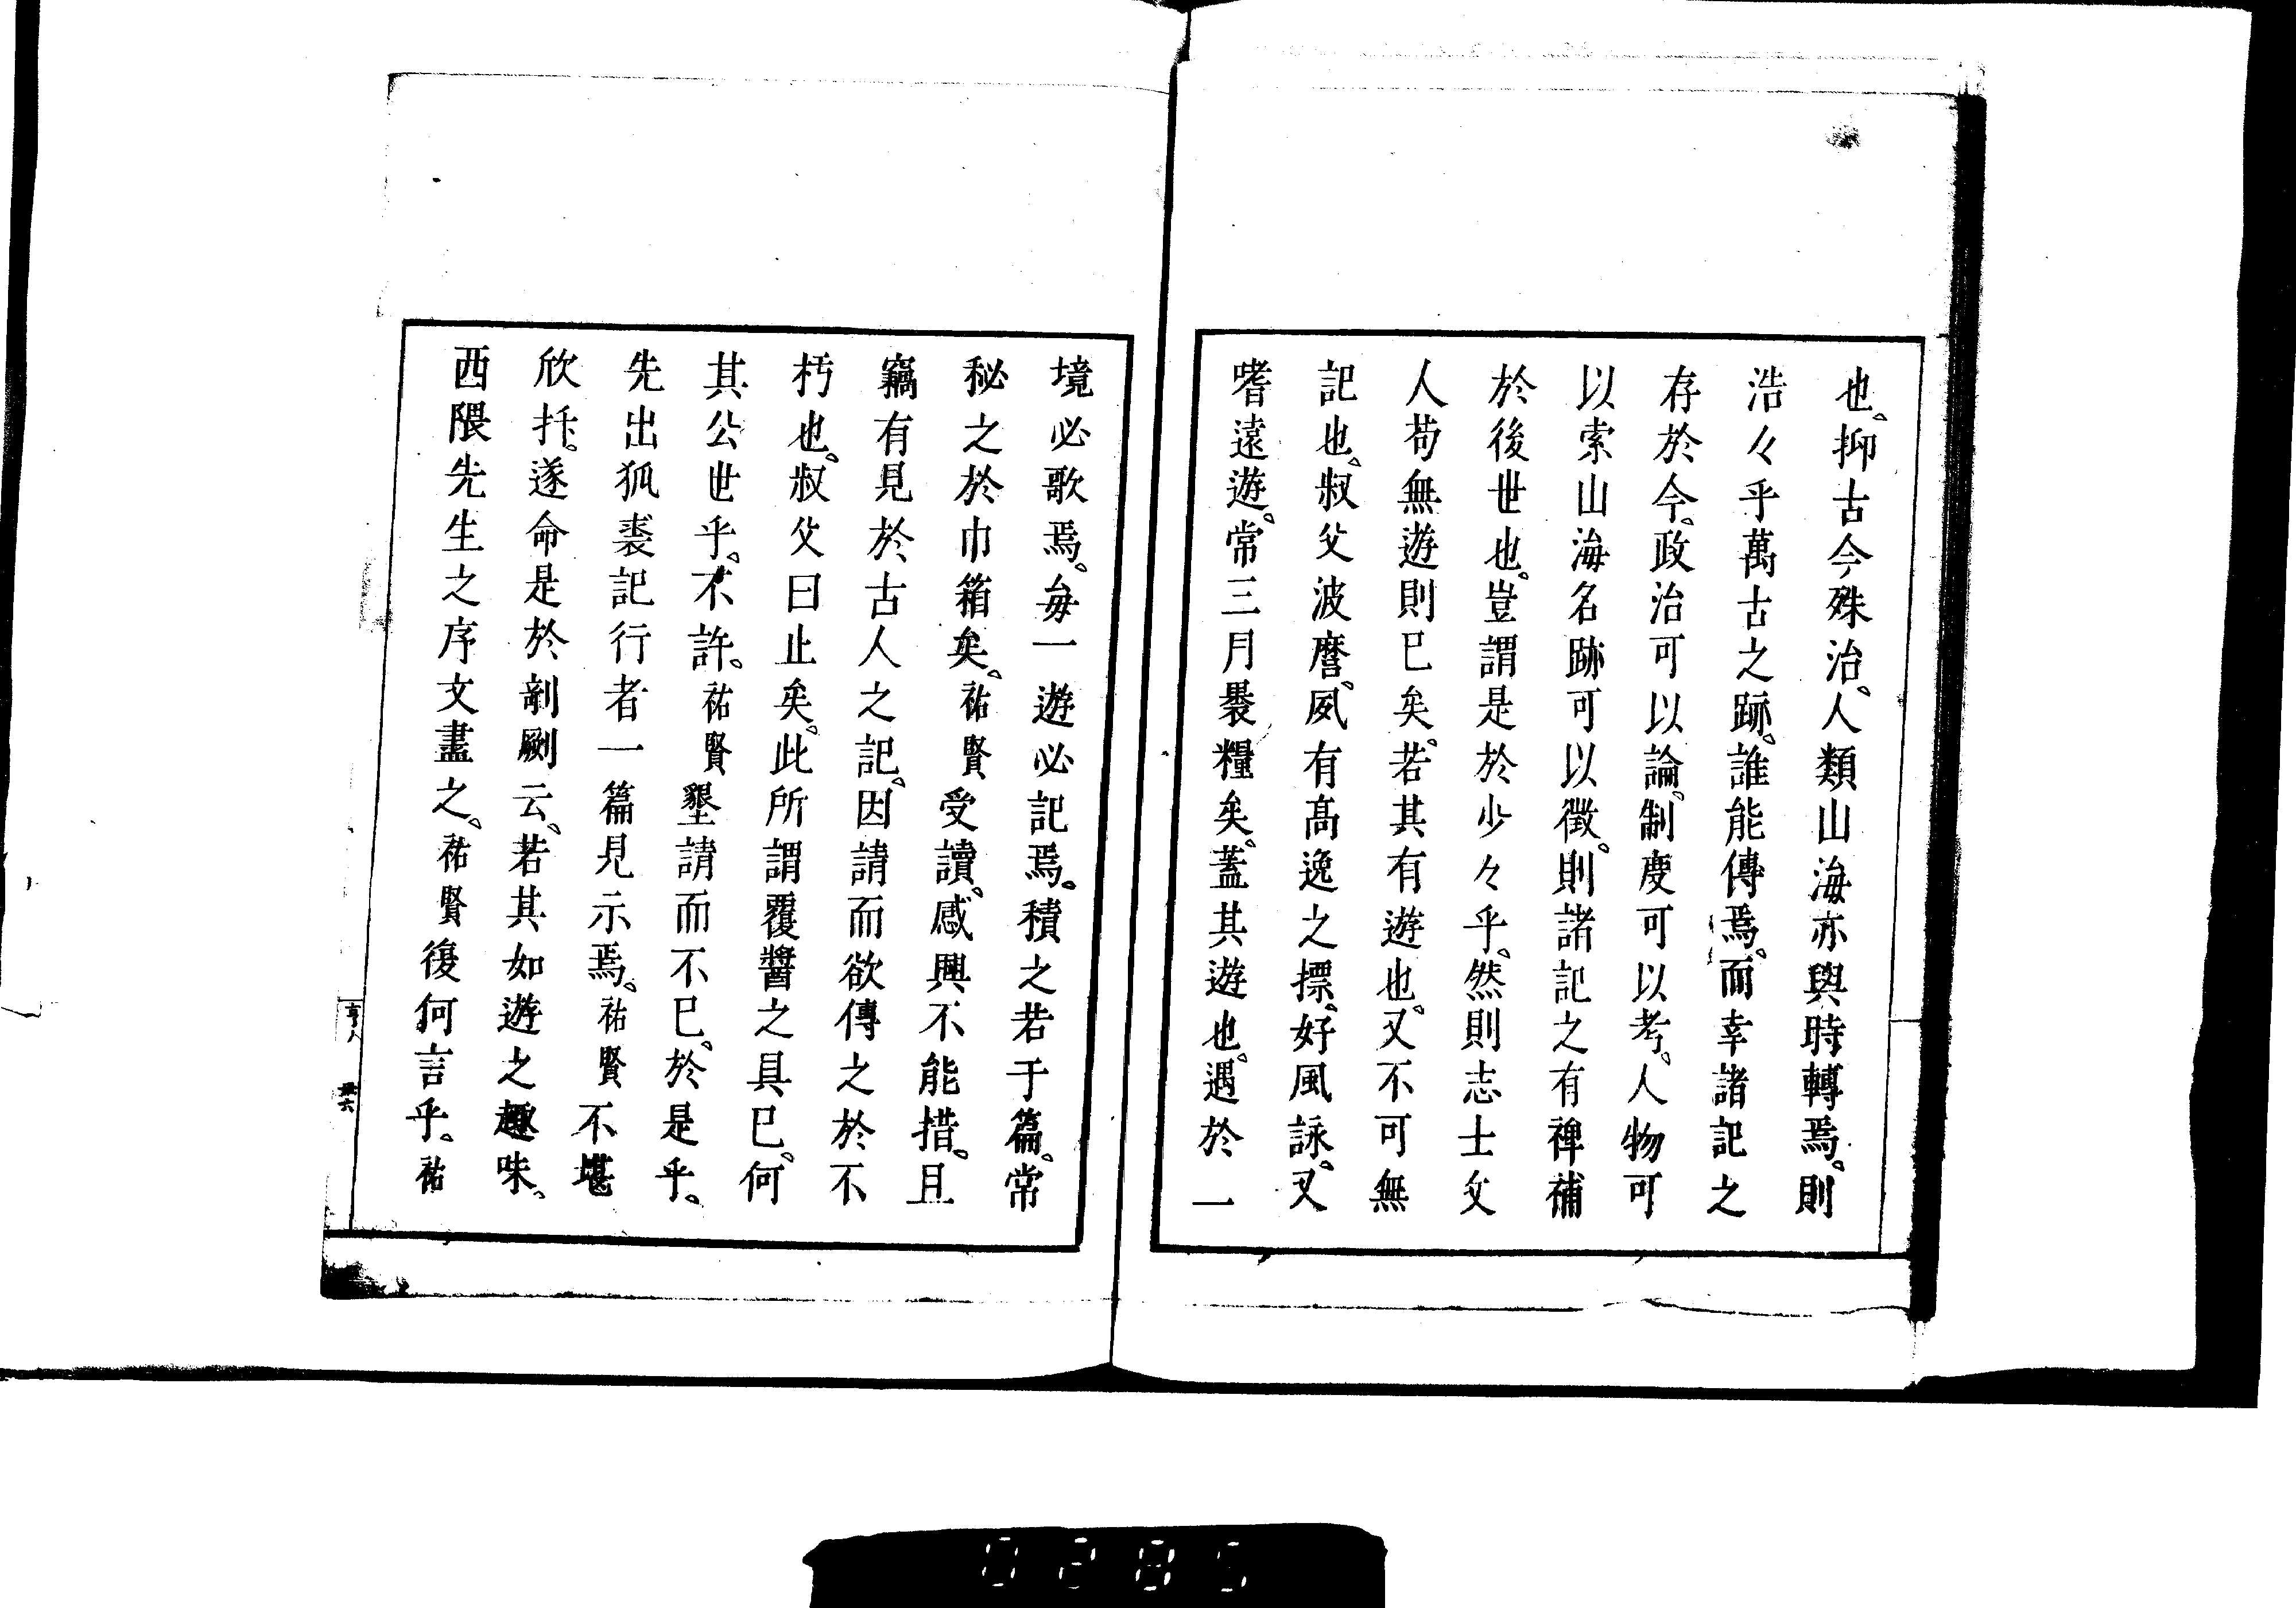 也。抑古今殊治。人類山海亦與時轉焉。則
浩々乎萬古之跡。誰能傳焉。而幸諸記之
存於今。政治可以論。制度可以考。人物可
以索山海名跡可以徵。則諸記之有裨補
於後世也。豈謂是於少々乎。然則志士文
人苟無遊則已矣。若其有遊也。又不可無
記也。叔父波麿。夙有高逸之摽。好風詠。又
嗜遠遊。常三月褁糧矣。蓋其遊也。遇於一
境必歌焉。毎一遊必記焉。積之若于篇。常
秘之於巾箱矣。祐賢受讀。感興不能措。且
竊有見於古人之記。因請而欲傳之於不
朽也。叔父曰止矣。此所謂覆醬之具已。何
其公世乎。不許。祐賢墾請而不已。於是乎。
先出狐裘記行者一篇見示焉。祐賢不堪
欣抃。遂命是於剞劂云。若其如遊之趣味。
西隈先生之序文盡之。祐賢復何言乎。祐
亨人
卅六
0285